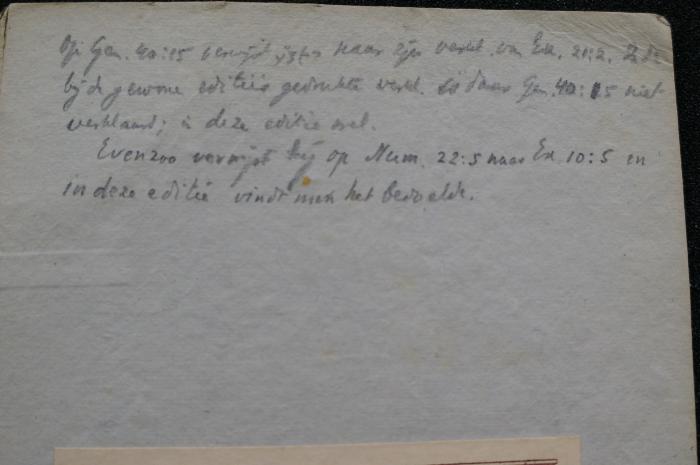 Op Gen. 40:15 verwijst naar zijn verkl. van Ex. 21:2.
bij de gewone editie's gedrukte verkl. is daar Gen. 40:15 niet
verklaard; in deze editie wel.
Evenzoo verwijst hij op Num. 22:5 naar Ex. 10:5 en
in deze editie vindt men het bedoelde.